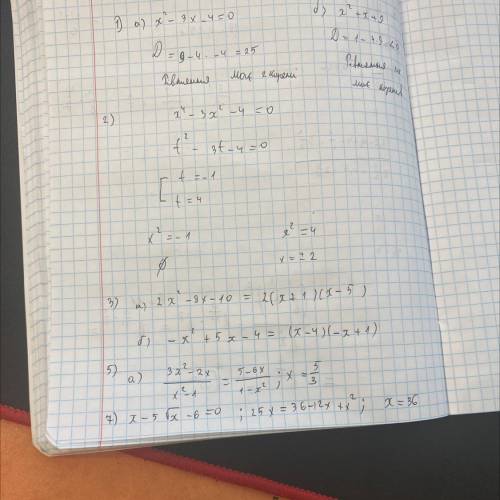 1) а) x² - 3x - 4 = 0
D = 9 - 4 · -4 = 25
Рівняння має 2 корені
б) x² + x + 9
D = 1 -
Рівняння не
має коренів
2) x⁴ - 3x² - 4 = 0
t² - 3t - 4 = 0
[ t = -1
t = 4
x² = -1
∅
x² = 4
x = ± 2
3) а) 2x² - 8x - 10 = 2(x + 1)(x - 5)
б) -x² + 5x - 4 = (x - 4)(-x + 1)
5) а) (3x² - 2x)/(x² - 1) = (5 - 6x)/(1 - x²) ; x = 5/3
7) x - 5√x - 6 = 0 ; 25x = 36 - 12x + x² ; x = 36